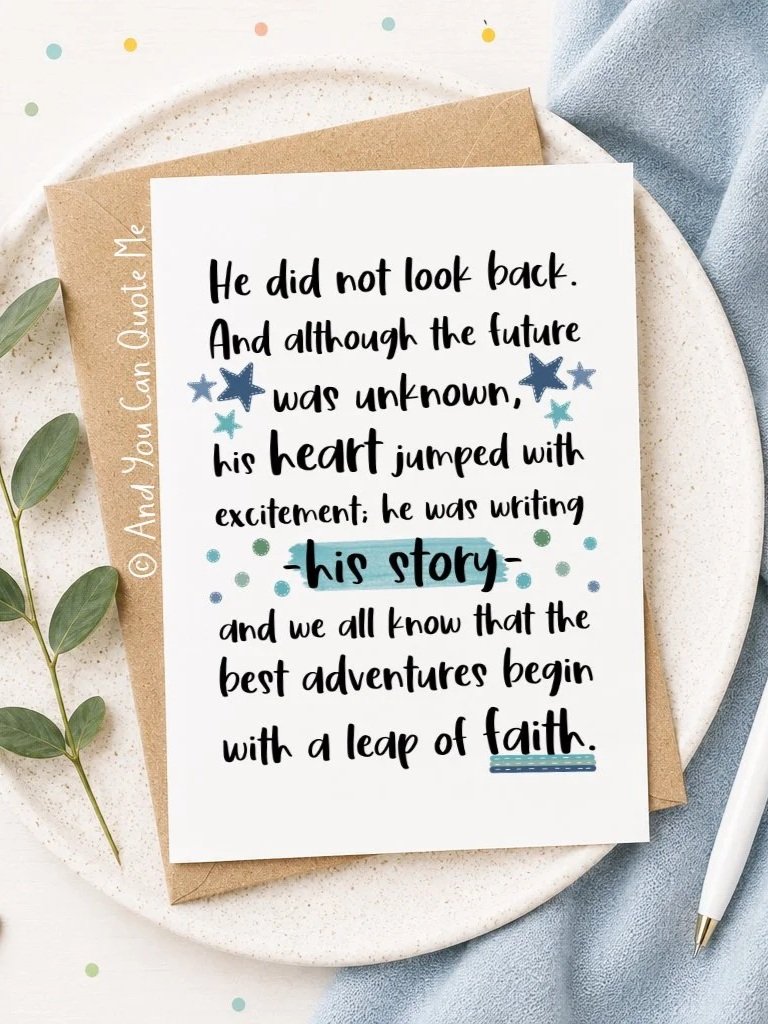 He did not look back.
And although the future
was unknown,
his heart jumped with
excitement; he was writing
-his story-
and we all know that the
best adventures begin
with a leap of faith.
© And You Can Quote Me